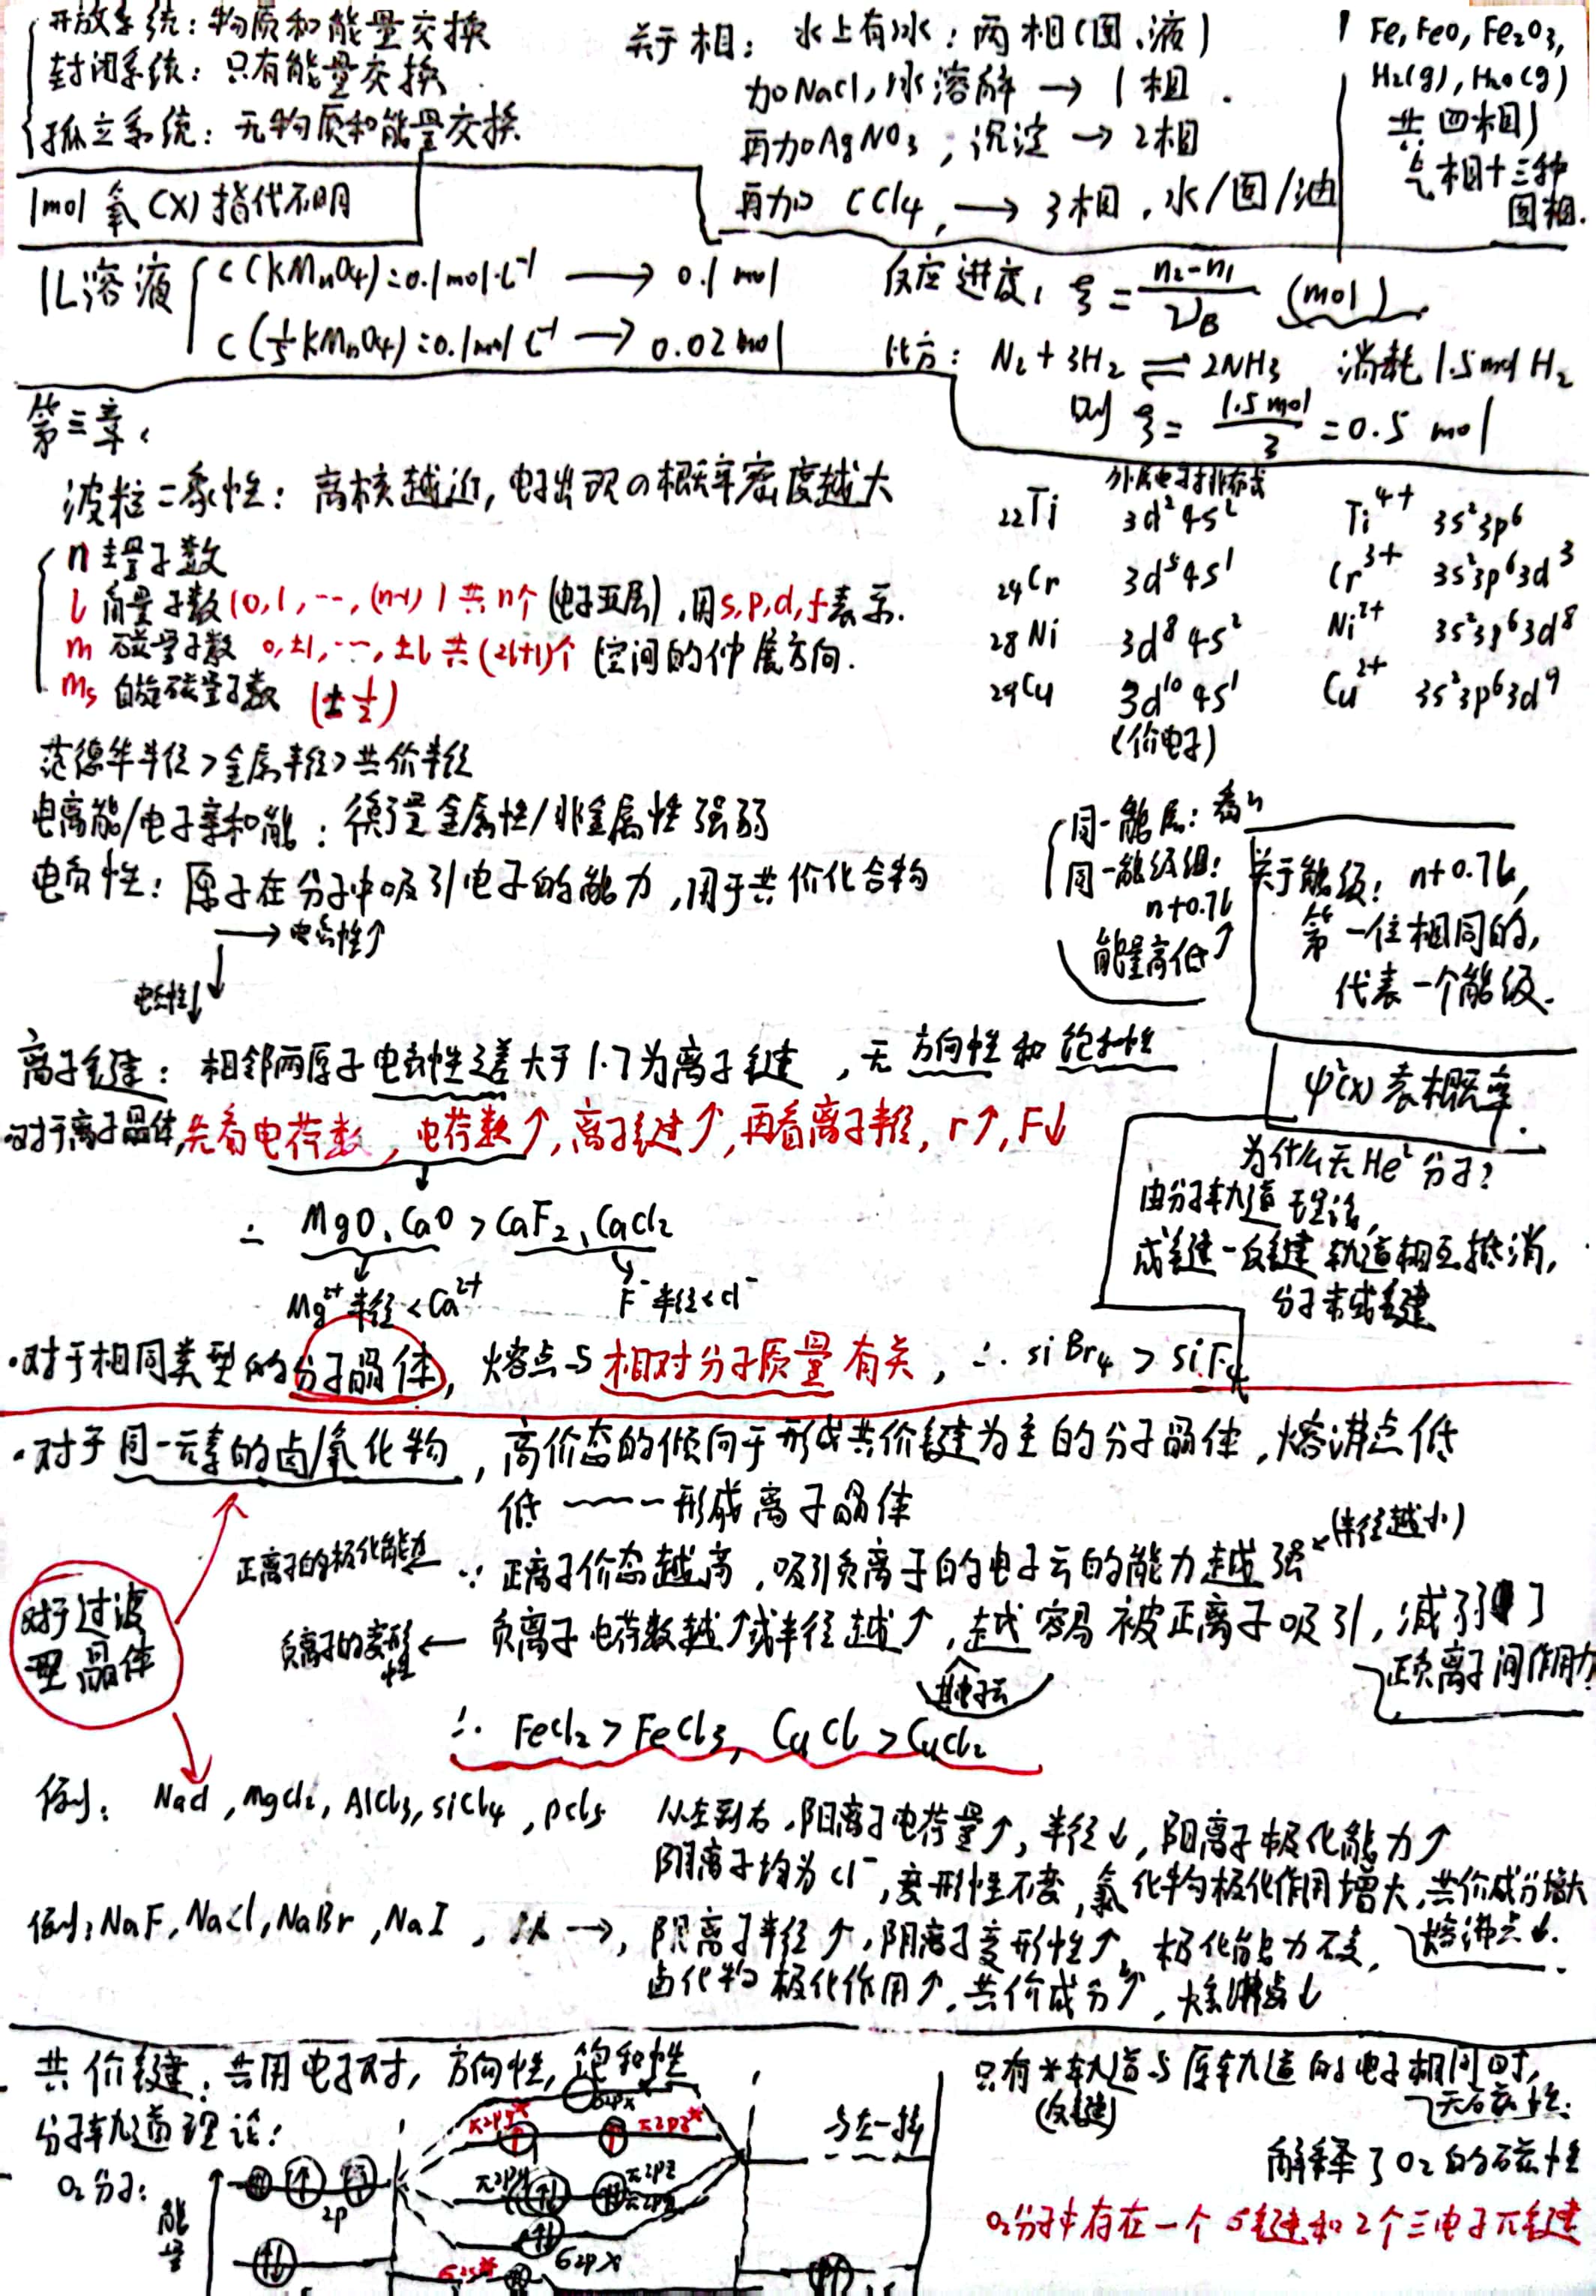 开放系统：物质和能量交换
封闭系统：只有能量交换
孤立系统：无物质和能量交换
关于相：水上有冰：两相（固、液）
加NaCl，冰溶解 → 1相.
再加AgNO₃，沉淀 → 2相
再加 CCl₄, → 3相，水/固/油
Fe, FeO, Fe₂O₃,
H₂(g), H₂O(g)
共四相
气相+三种
固相.
1mol 氧 (X) 指代不明
1L溶液 c(KMnO₄)=0.1mol·L⁻¹ → 0.1 mol
c(1/5 KMnO₄)=0.1mol L⁻¹ → 0.02 mol
反应进度, ξ = (n₂-n₁)/ν_B (mol)
比方：N₂ + 3H₂ ⇌ 2NH₃ 消耗 1.5mol H₂
则 ξ = 1.5mol/3 = 0.5 mol
第三章.
波粒二象性：离核越近，电子出现の概率密度越大
n 主量子数
l 角量子数 (0,1,…,(n-1)) 共n个 (电子亚层), 用s,p,d,f表示.
m 磁量子数 0,±1,…,±l 共(2l+1)个 (空间的伸展方向.
ms 自旋磁量子数 (±1/2)
外层电子排布式
₂₂Ti 3d²4s² Ti⁴⁺ 3s²3p⁶
₂₄Cr 3d⁵4s¹ Cr³⁺ 3s²3p⁶3d³
₂₈Ni 3d⁸4s² Ni²⁺ 3s²3p⁶3d⁸
₂₉Cu 3d¹⁰4s¹ Cu²⁺ 3s²3p⁶3d⁹
(价电子)
范德华半径>金属半径>共价半径
电离能/电子亲和能：衡量金属性/非金属性强弱
电负性：原子在分子中吸引电子的能力，用于共价化合物
→ 电负性↑
电负性↓
同一能层：看n
同一能级组：
n+0.7l
能量高低↑
关于能级：n+0.7l,
第一位相同的,
代表一个能级.
离子键：相邻两原子电负性之差大于1.7为离子键，无方向性和饱和性
ψ²(x)表概率.
对于离子晶体,先看电荷数，电荷数↑,离子键↑,再看离子半径, r↑, F↓
∴ MgO、CaO > CaF₂、CaCl₂
Mg²⁺半径<Ca²⁺
F⁻半径<Cl⁻
为什么无He² 分子?
由分子轨道理论,
成键-反键轨道相互抵消,
分子未成键
·对于相同类型的分子晶体，熔点与相对分子质量有关，∴ SiBr₄ > SiF₄
·对于同一元素的卤/氧化物，高价态的倾向于形成共价键为主的分子晶体，熔沸点低
低 ~~~~ 形成离子晶体
对于过渡
型晶体
正离子的极化能力 ∵ 正离子价态越高，吸引负离子的电子云的能力越强 (半径越小)
负离子的变形性 ← 负离子电荷数越↑或半径越↑，越容易被正离子吸引，减弱了
其电子云
正负离子间作用力!
∴ FeCl₂ > FeCl₃, CuCl > CuCl₂
例：NaCl, MgCl₂, AlCl₃, SiCl₄, PCl₅ 从左到右，阳离子电荷量↑，半径↓，阳离子极化能力↑
阴离子均为Cl⁻，变形性不变，氯化物极化作用增大，共价成分增大
熔沸点↓.
例：NaF, NaCl, NaBr, NaI, 从 →, 阴离子半径↑，阴离子变形性↑，极化能力不变,
卤化物极化作用↑，共价成分↑，熔沸点↓
共价键：共用电子对，方向性，饱和性
分子轨道理论：
O₂分子：
能量
2p
σ2px*
π2py* π2pz*
π2py π2pz
σ2px
σ2s*
与左一样
只有*轨道与原轨道的电子相同时,
(反键)
无磁性:
解释了O₂的磁性
O₂分子中存在一个σ键和2个三电子π键